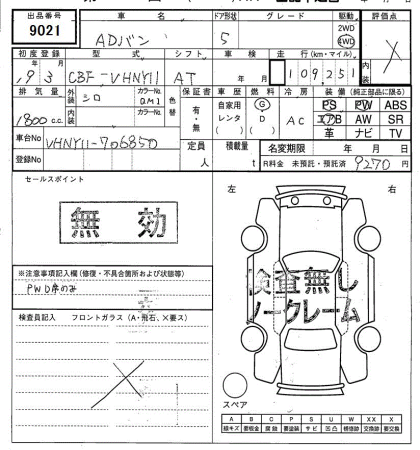 出品番号 車名 ドア形状 グレード 駆動 評価点
9021 ADバン 5 2WD 4WD X
内装
初度登録 型式 シフト 車検 走行(km・マイル)
19年3月 CBF-VHNY11 AT 年 月 109,251
排気量 外装 シロ カラーNo. QM1 色替 保証書 車歴 燃料 冷房 装備(純正部品に限る)
1800 c.c. 内装 カラーNo. 有・無 自家用 レンタ ( ) G D ( ) AC PS PW ABS
エアB AW SR
革 ナビ TV
車台No VHNY11-706850 定員 人 積載量 t 名変期限 年 月 日
登録No R料金 未預託・預託済 9270円
セールスポイント
無効
左 右
検査無し
ノークレーム
※注意事項記入欄(修復・不具合箇所および状態等)
PWD席のみ
検査員記入 フロントガラス(A・飛石、X要ス)
スペア
A B C P S U W XX X
線キズ 要板金 腐蝕 要塗装 サビ 凹凸 補修跡 交換跡 要交換